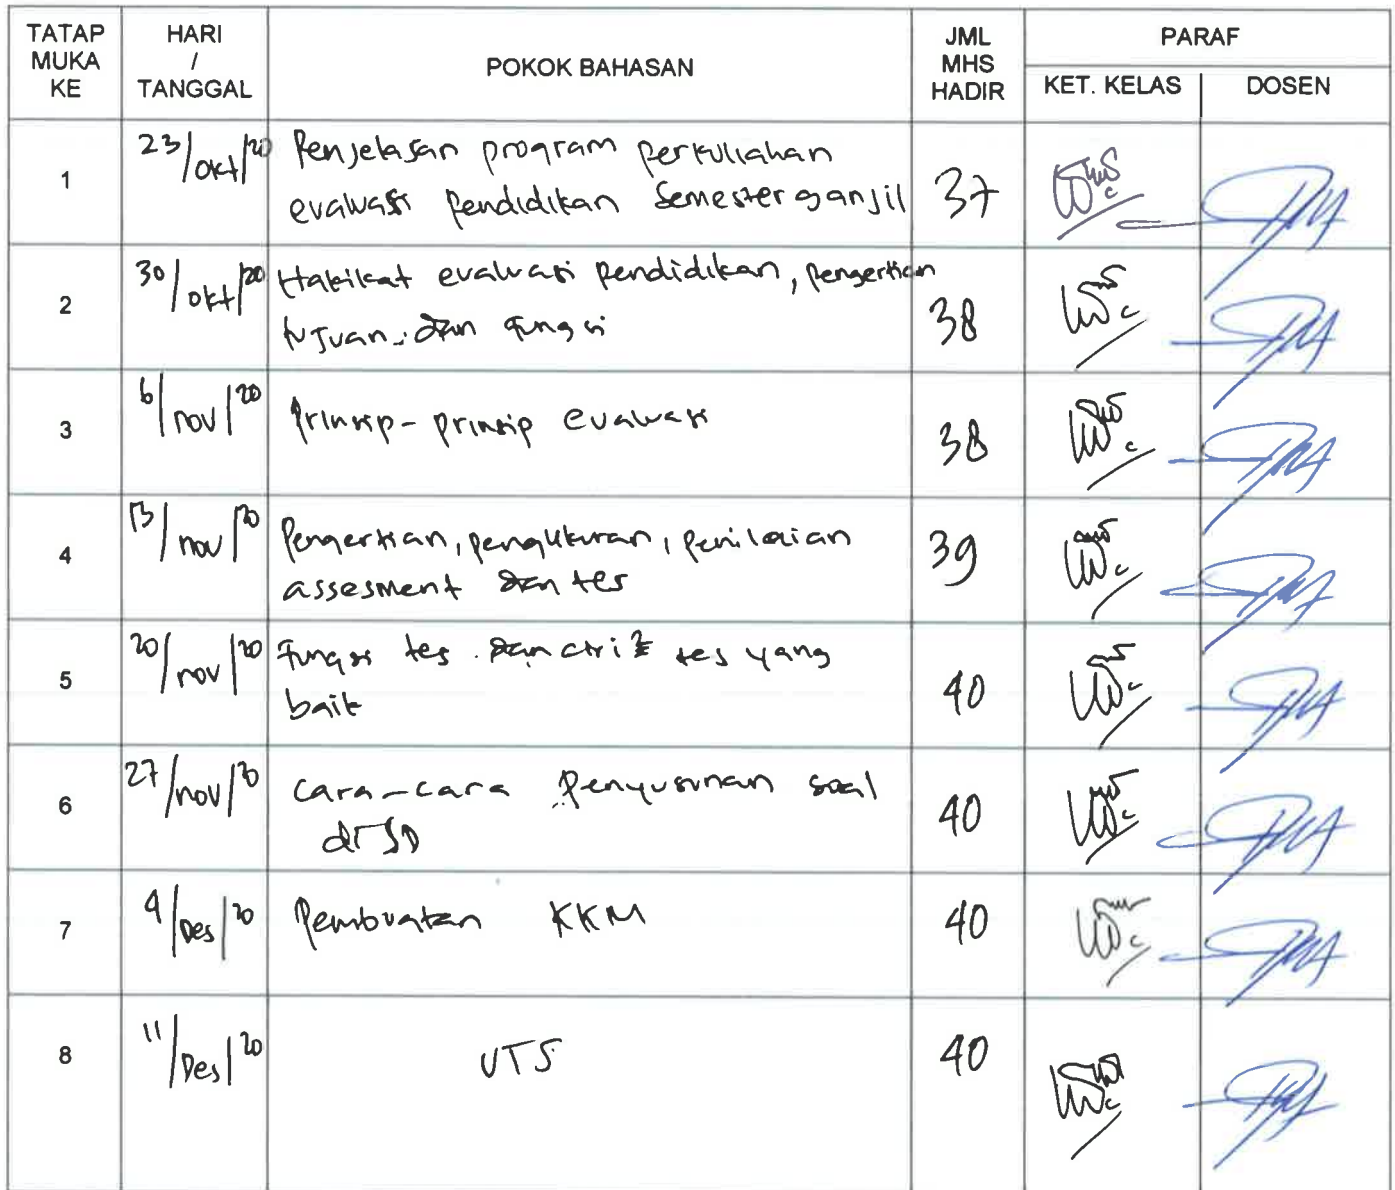 TATAP MUKA KE
HARI / TANGGAL
POKOK BAHASAN
JML MHS HADIR
PARAF
KET. KELAS
DOSEN
1
23/Okt/20
Penjelasan program perkuliahan
evaluasi Pendidikan Semester ganjil
37
2
30/Okt/20
Hakikat evaluasi Pendidikan, pengertian
tujuan, dan Fungsi
38
3
6/nov/20
Prinsip-prinsip evaluasi
38
4
13/nov/20
Pengertian, pengukuran, penilaian
assesment dan tes
39
5
20/nov/20
Fungsi tes dan ciri2 tes yang
baik
40
6
27/nov/20
Cara-cara Penyusunan soal
di SD
40
7
4/Des/20
Pembuatan KKM
40
8
11/Des/20
UTS
40